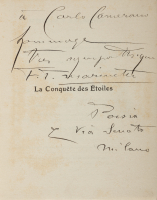 à Carlo Cameroni
hommage
très sympathique
F. T. Marinetti
La Conquête des Étoiles
Poesia
2 Via Senato
Milano